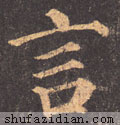 言
shufazidian.com